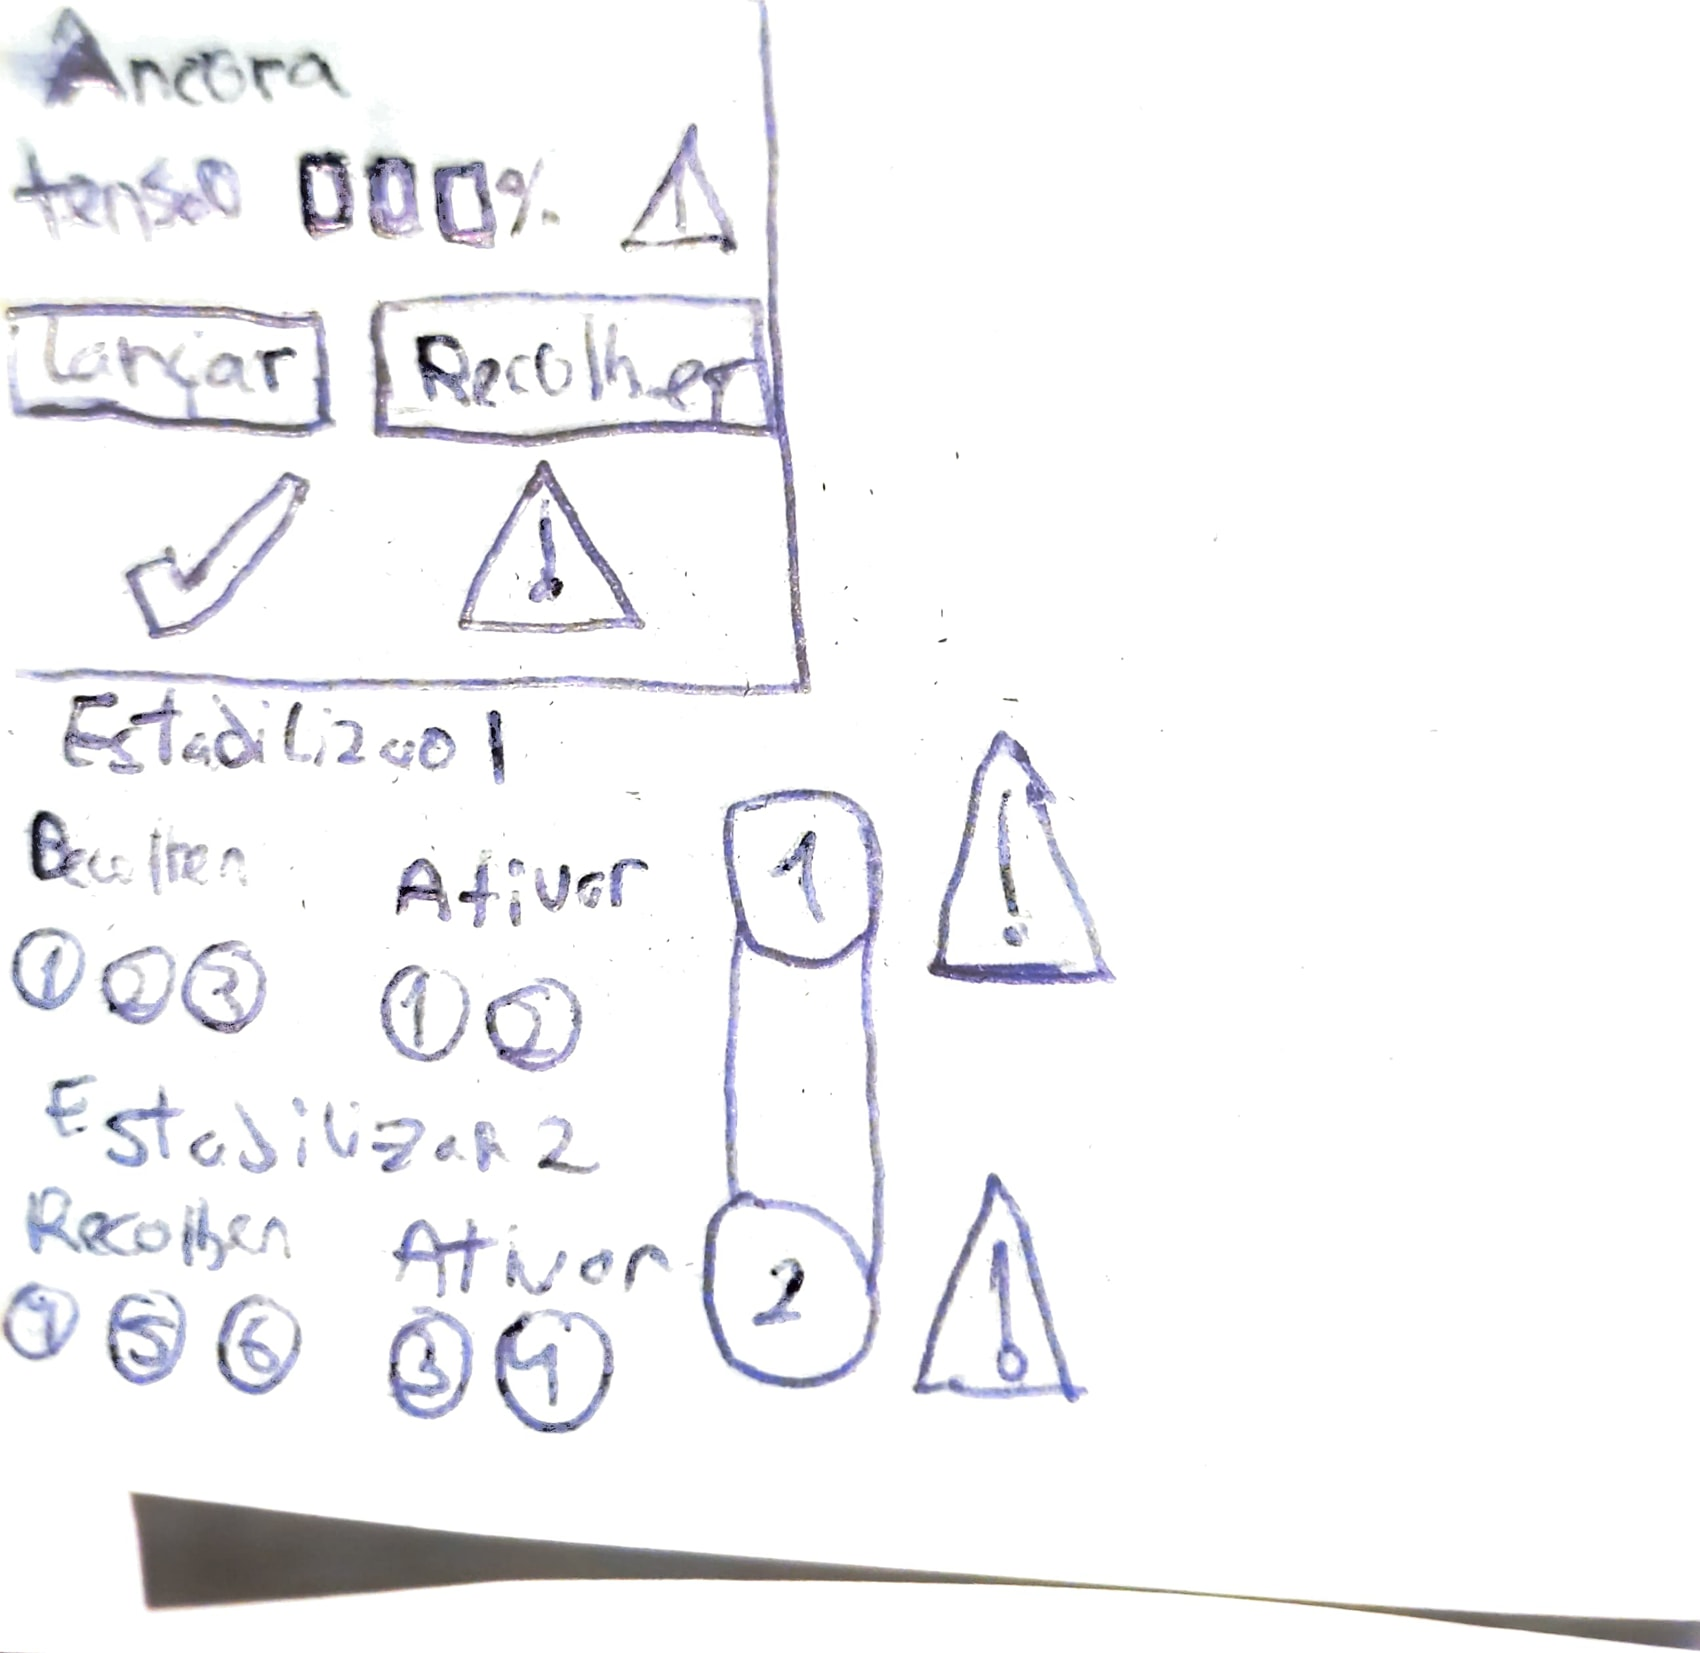 Ancora
tensão 000%
Lançar Recolher
Estabilizao 1
Recolher Ativar
1 2 3 1 2
1
Estabilizar 2
Recolher Ativar
4 5 6 3 4
2